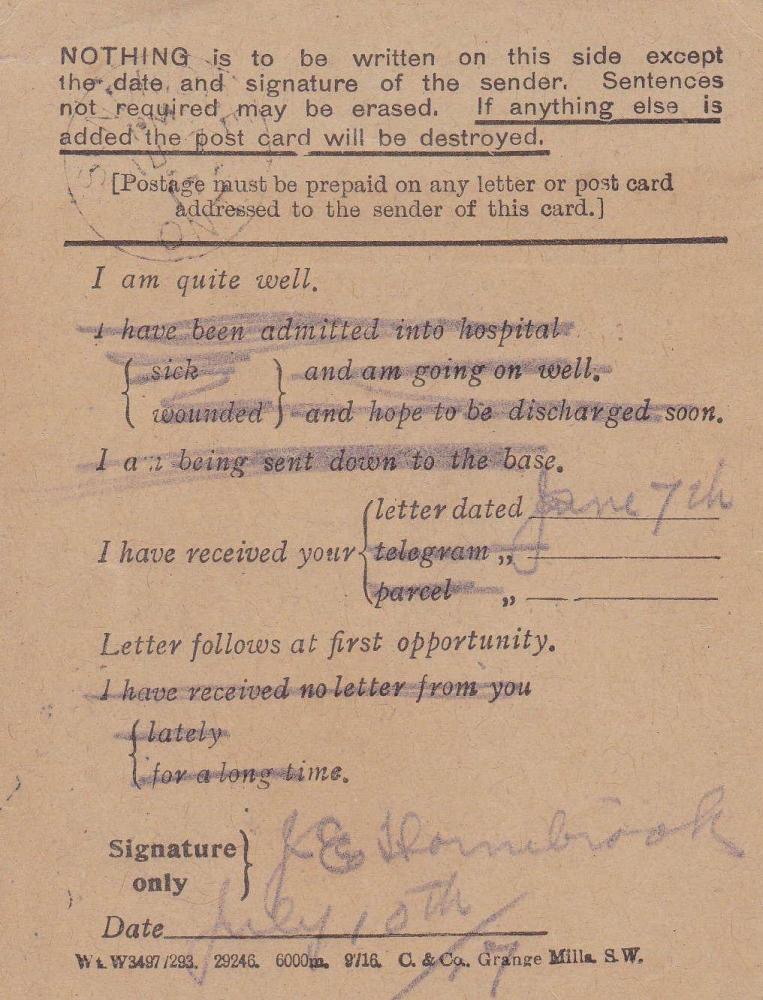 NOTHING is to be written on this side except
the date and signature of the sender. Sentences
not required may be erased. If anything else is
added the post card will be destroyed.
[Postage must be prepaid on any letter or post card
addressed to the sender of this card.]
I am quite well.
I have been admitted into hospital
sick and am going on well.
wounded and hope to be discharged soon.
I am being sent down to the base.
letter dated June 7th
I have received your telegram „
parcel „
Letter follows at first opportunity.
I have received no letter from you
lately
for a long time.
Signature
only
J E Hornebrook
Date July 10th /17
Wt. W3497/293. 29246. 6000m. 9/16. C. & Co., Grange Mills, S.W.